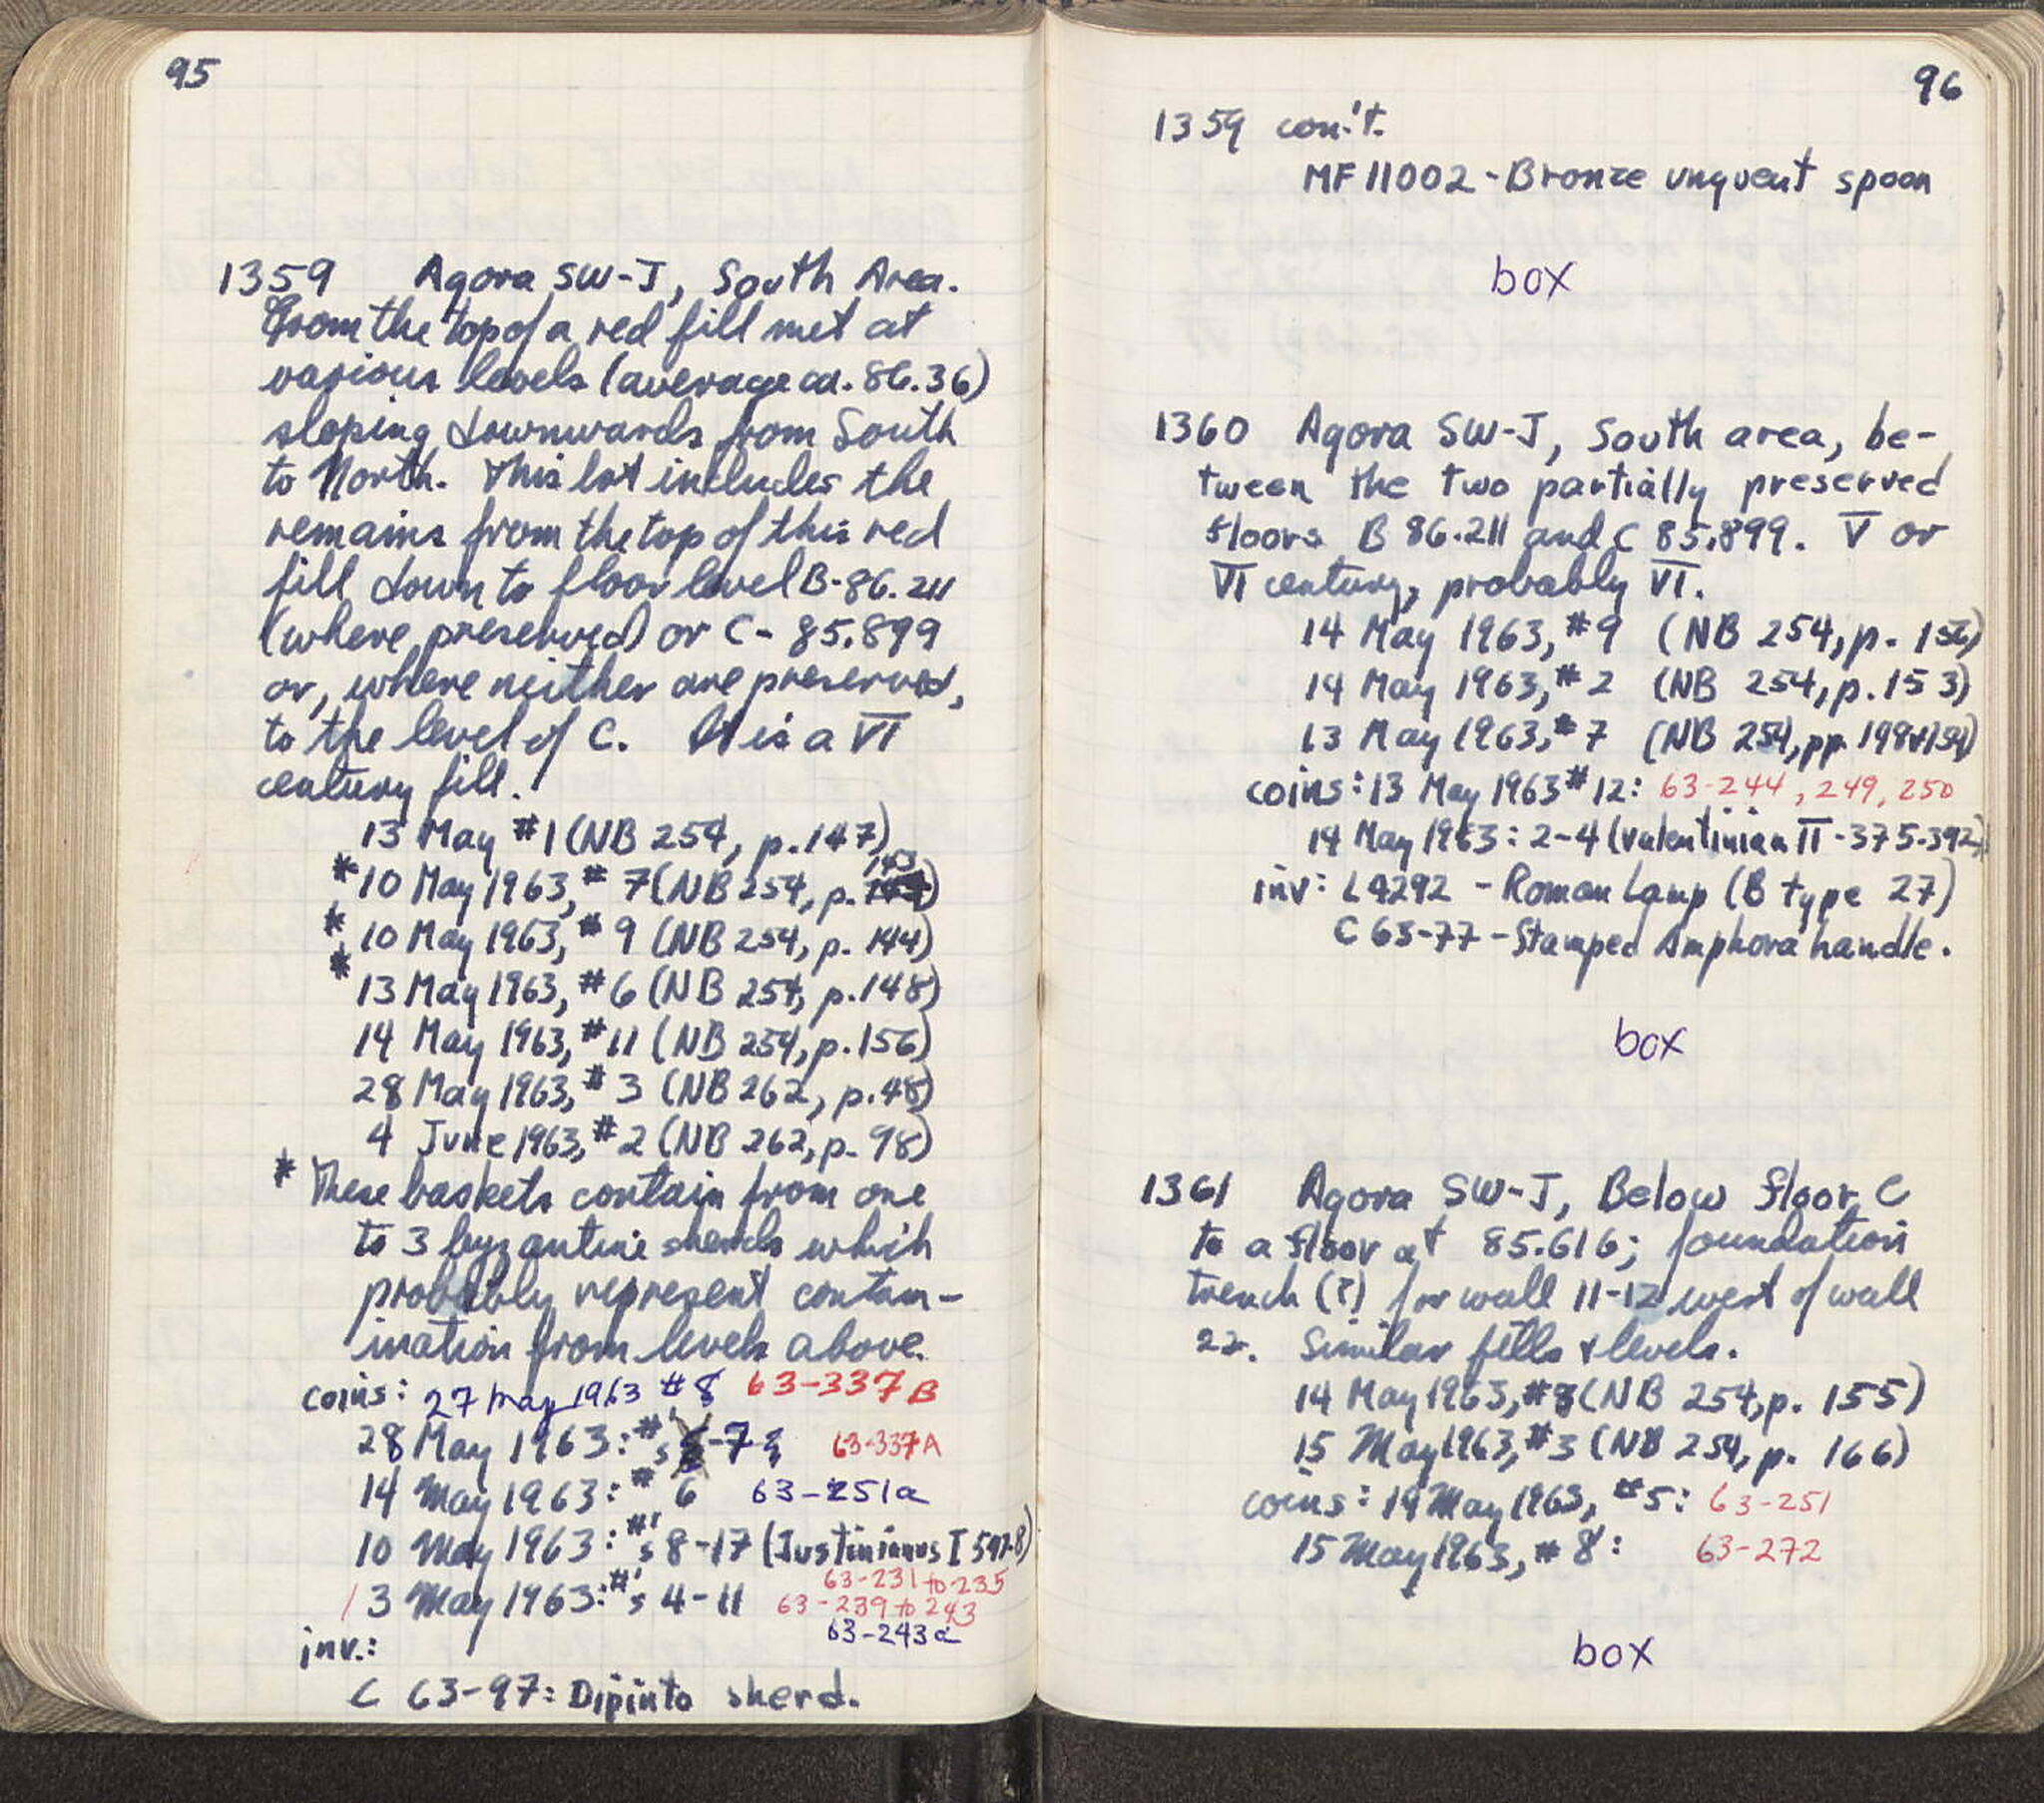 95
1359 Agora SW-J, South Area.
From the top of a red fill met at
various levels (average ca. 86.36)
sloping downwards from South
to North. This lot includes the
remains from the top of this red
fill down to floor level B-86.211
(where preserved) or C- 85.899
or, where neither are preserved,
to the level of C. It is a VI
century fill.
13 May #1 (NB 254, p.147)
143
*10 May 1963, # 7 (NB 254, p.
* 10 May 1963, # 9 (NB 254, p. 144)
* 13 May 1963, #6 (NB 254, p.148)
14 May 1963, #11 (NB 254, p.156)
28 May 1963, # 3 (NB 262, p.48)
4 June 1963, #2 (NB 262, p. 98)
* These baskets contain from one
to 3 byzantine sherds which
probably represent contam-
ination from levels above.
coins: 27 May 1963 #8 63-337 B
28 May 1963: #'s -7- 63-337A
14 May 1963: # 6 63-251a
10 May 1963: #'s 8-17 (Justinianus I
63-231 to 235
13 May 1963: #'s 4-11 63-239 to 243
63-243a
inv.:
C 63-97: Dipinto sherd.
96
1359 con't.
MF 11002 - Bronze unguent spoon
box
1360 Agora SW-J, South area, be-
tween the two partially preserved
floors B 86.211 and C 85.899. V or
VI century, probably VI.
14 May 1963, #9 (NB 254, p. 156)
14 May 1963, #2 (NB 254, p.153)
13 May 1963, #7 (NB 254, pp.
coins: 13 May 1963 #12: 63-244, 249, 250
14 May 1963: 2-4 (Valentinian II - 375-392)
inv: L4292 - Roman Lamp (B type 27)
C 63-77 - Stamped Amphora handle.
box
1361 Agora SW-J, Below floor C
to a floor at 85.616; foundation
trench (?) for wall 11-12 west of wall
22. Similar fills & levels.
14 May 1963, #8 (NB 254, p. 155)
15 May 1963, #3 (NB 254, p. 166)
coins: 14 May 1963, #5: 63-251
15 May 1963, # 8: 63-272
box